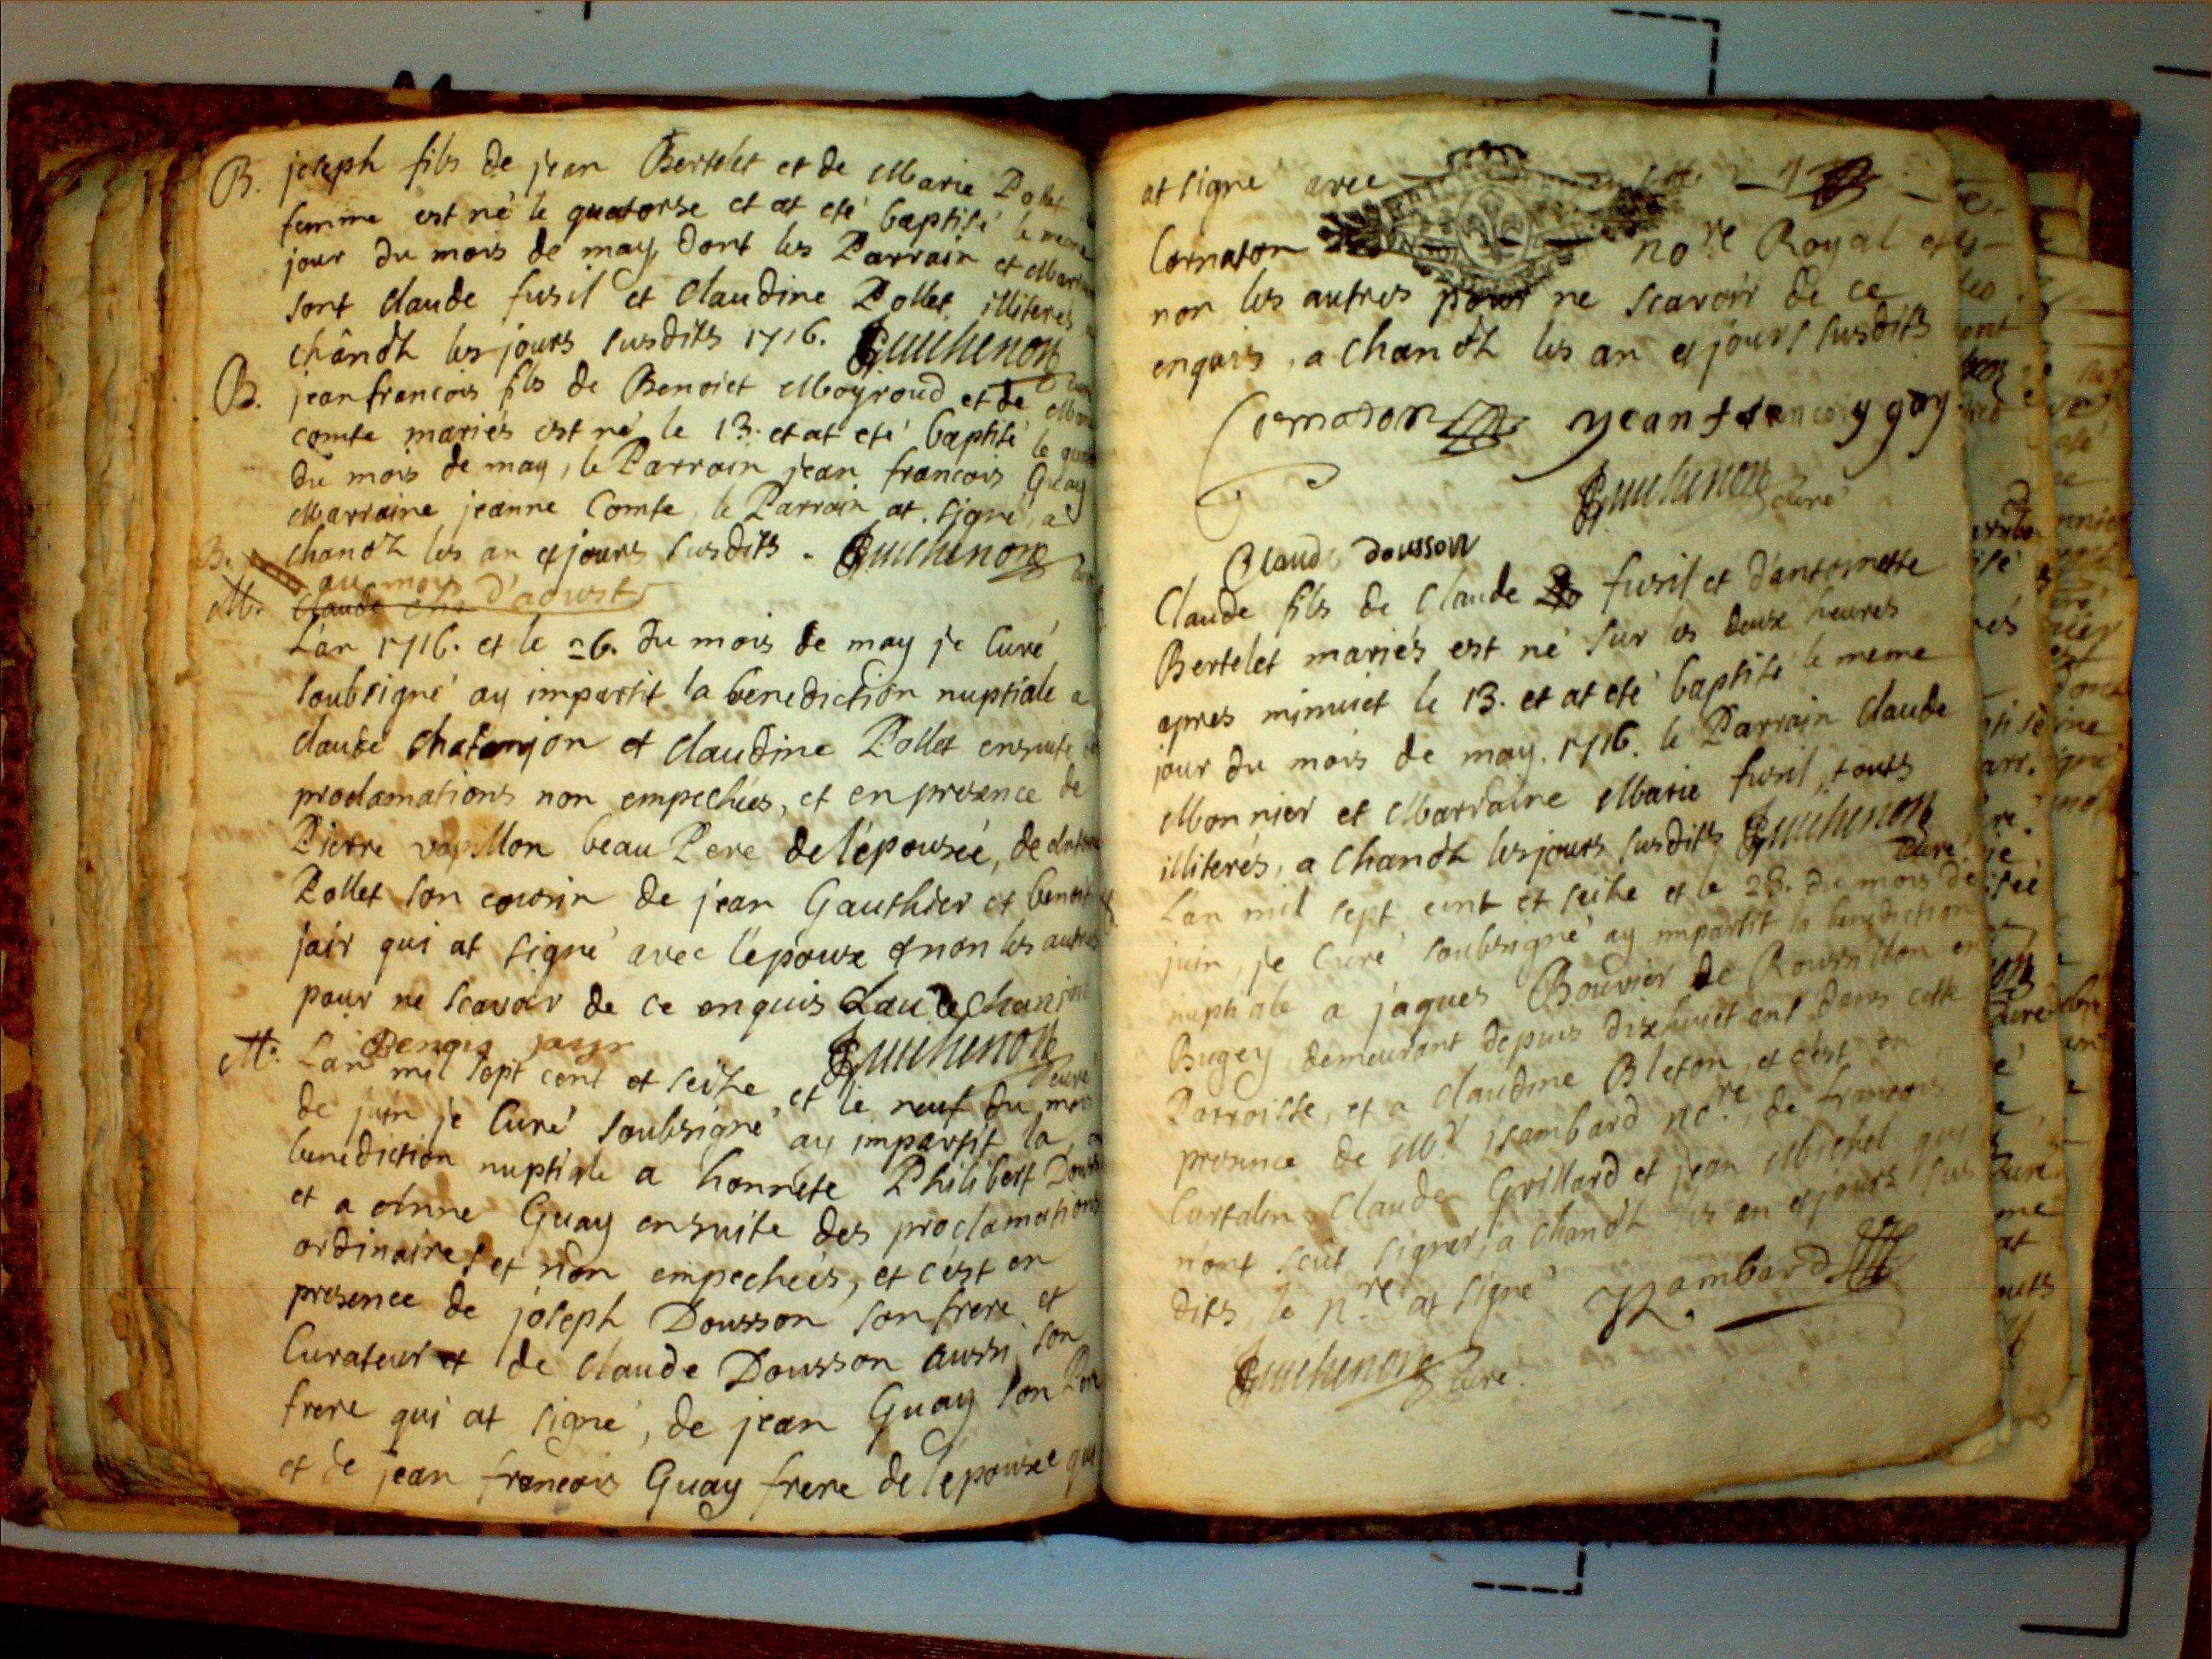 B. joseph fils de jean Bertelet et de Marie Pollet
femme est né le quatorse et at eté baptisé le meme
jour du mois de may, dont les Parrain et Marraine
sont claude fusil et claudine Pollet illiteres
chândt les jours susdits 1716. Guichenon
B. jean francois fils de Benoict Moyroud et de
comte mariés est né le 13. et at eté baptisé le
du mois de may, le Parrain jean francois Guay
Marraine jeanne Comte, le Parrain at signé, a
chandt les an et jours susdits. Guichenon
B.
au moys d'aoust
M. claude
L'an 1716. et le 26. du mois de may je Curé
soubsigné ay impartit la benediction nuptiale a
claude chatanjon et claudine Pollet ensuite
proclamations non empechées, et en presence de
Pierre vapillon beau Pere de l'épousée, de Antoine
Pollet son cousin de jean Gauthier et benoit
jair qui at signé avec l'epoux et non les autres
pour ne scavoir de ce enquis Claude
Benois jayr Guichenon
curé
M. L'an mil sept cent et seize et le neuf du mois
de juin je Curé soubsigné ay impartit la
benediction nuptiale a honnete Philibert Dousson
et a Anne Guay ensuite des proclamations
ordinaires et non empechées, et c'est en
presence de joseph Dousson son frere et
Curateur et de claude Dousson aussi son
frere qui at signé, de jean Guay son Pere
et de jean francois Guay frere de l'epousée qui
at signé avec
Cornaton no.re Royal et
non les autres pour ne scavoir de ce
enquis, a chandt les an et jours susdits
Cornaton yean francoiy gay
Guichenon curé
Claude dousson
Claude fils de Claude fusil et d'antoinette
Bertelet mariés est né sur les deux heures
apres minuict le 13. et at eté baptisé le meme
jour du mois de may. 1716. le Parrain claude
Monnier et Marraine Marie fusil, touts
illiterés, a chandt les jours susdits Guichenon
curé.
L'an mil sept cent et seize et le 23. du mois de
juin, je Curé soubsigné ay impartit la benediction
nuptiale a jaques Bouvier de Roussillon en
Bugey, demeurant depuis dixhuict ans dans cette
Parroisse, et a claudine Bleton, et c'est en
presence de Mr. isambard no.re, de francois
Curtalin Claude Grillard et jean Michel qui
n'ont sceut signer, a chandt les an et jours sus
dits, le n.re at signé Isambard
Guichenon curé.